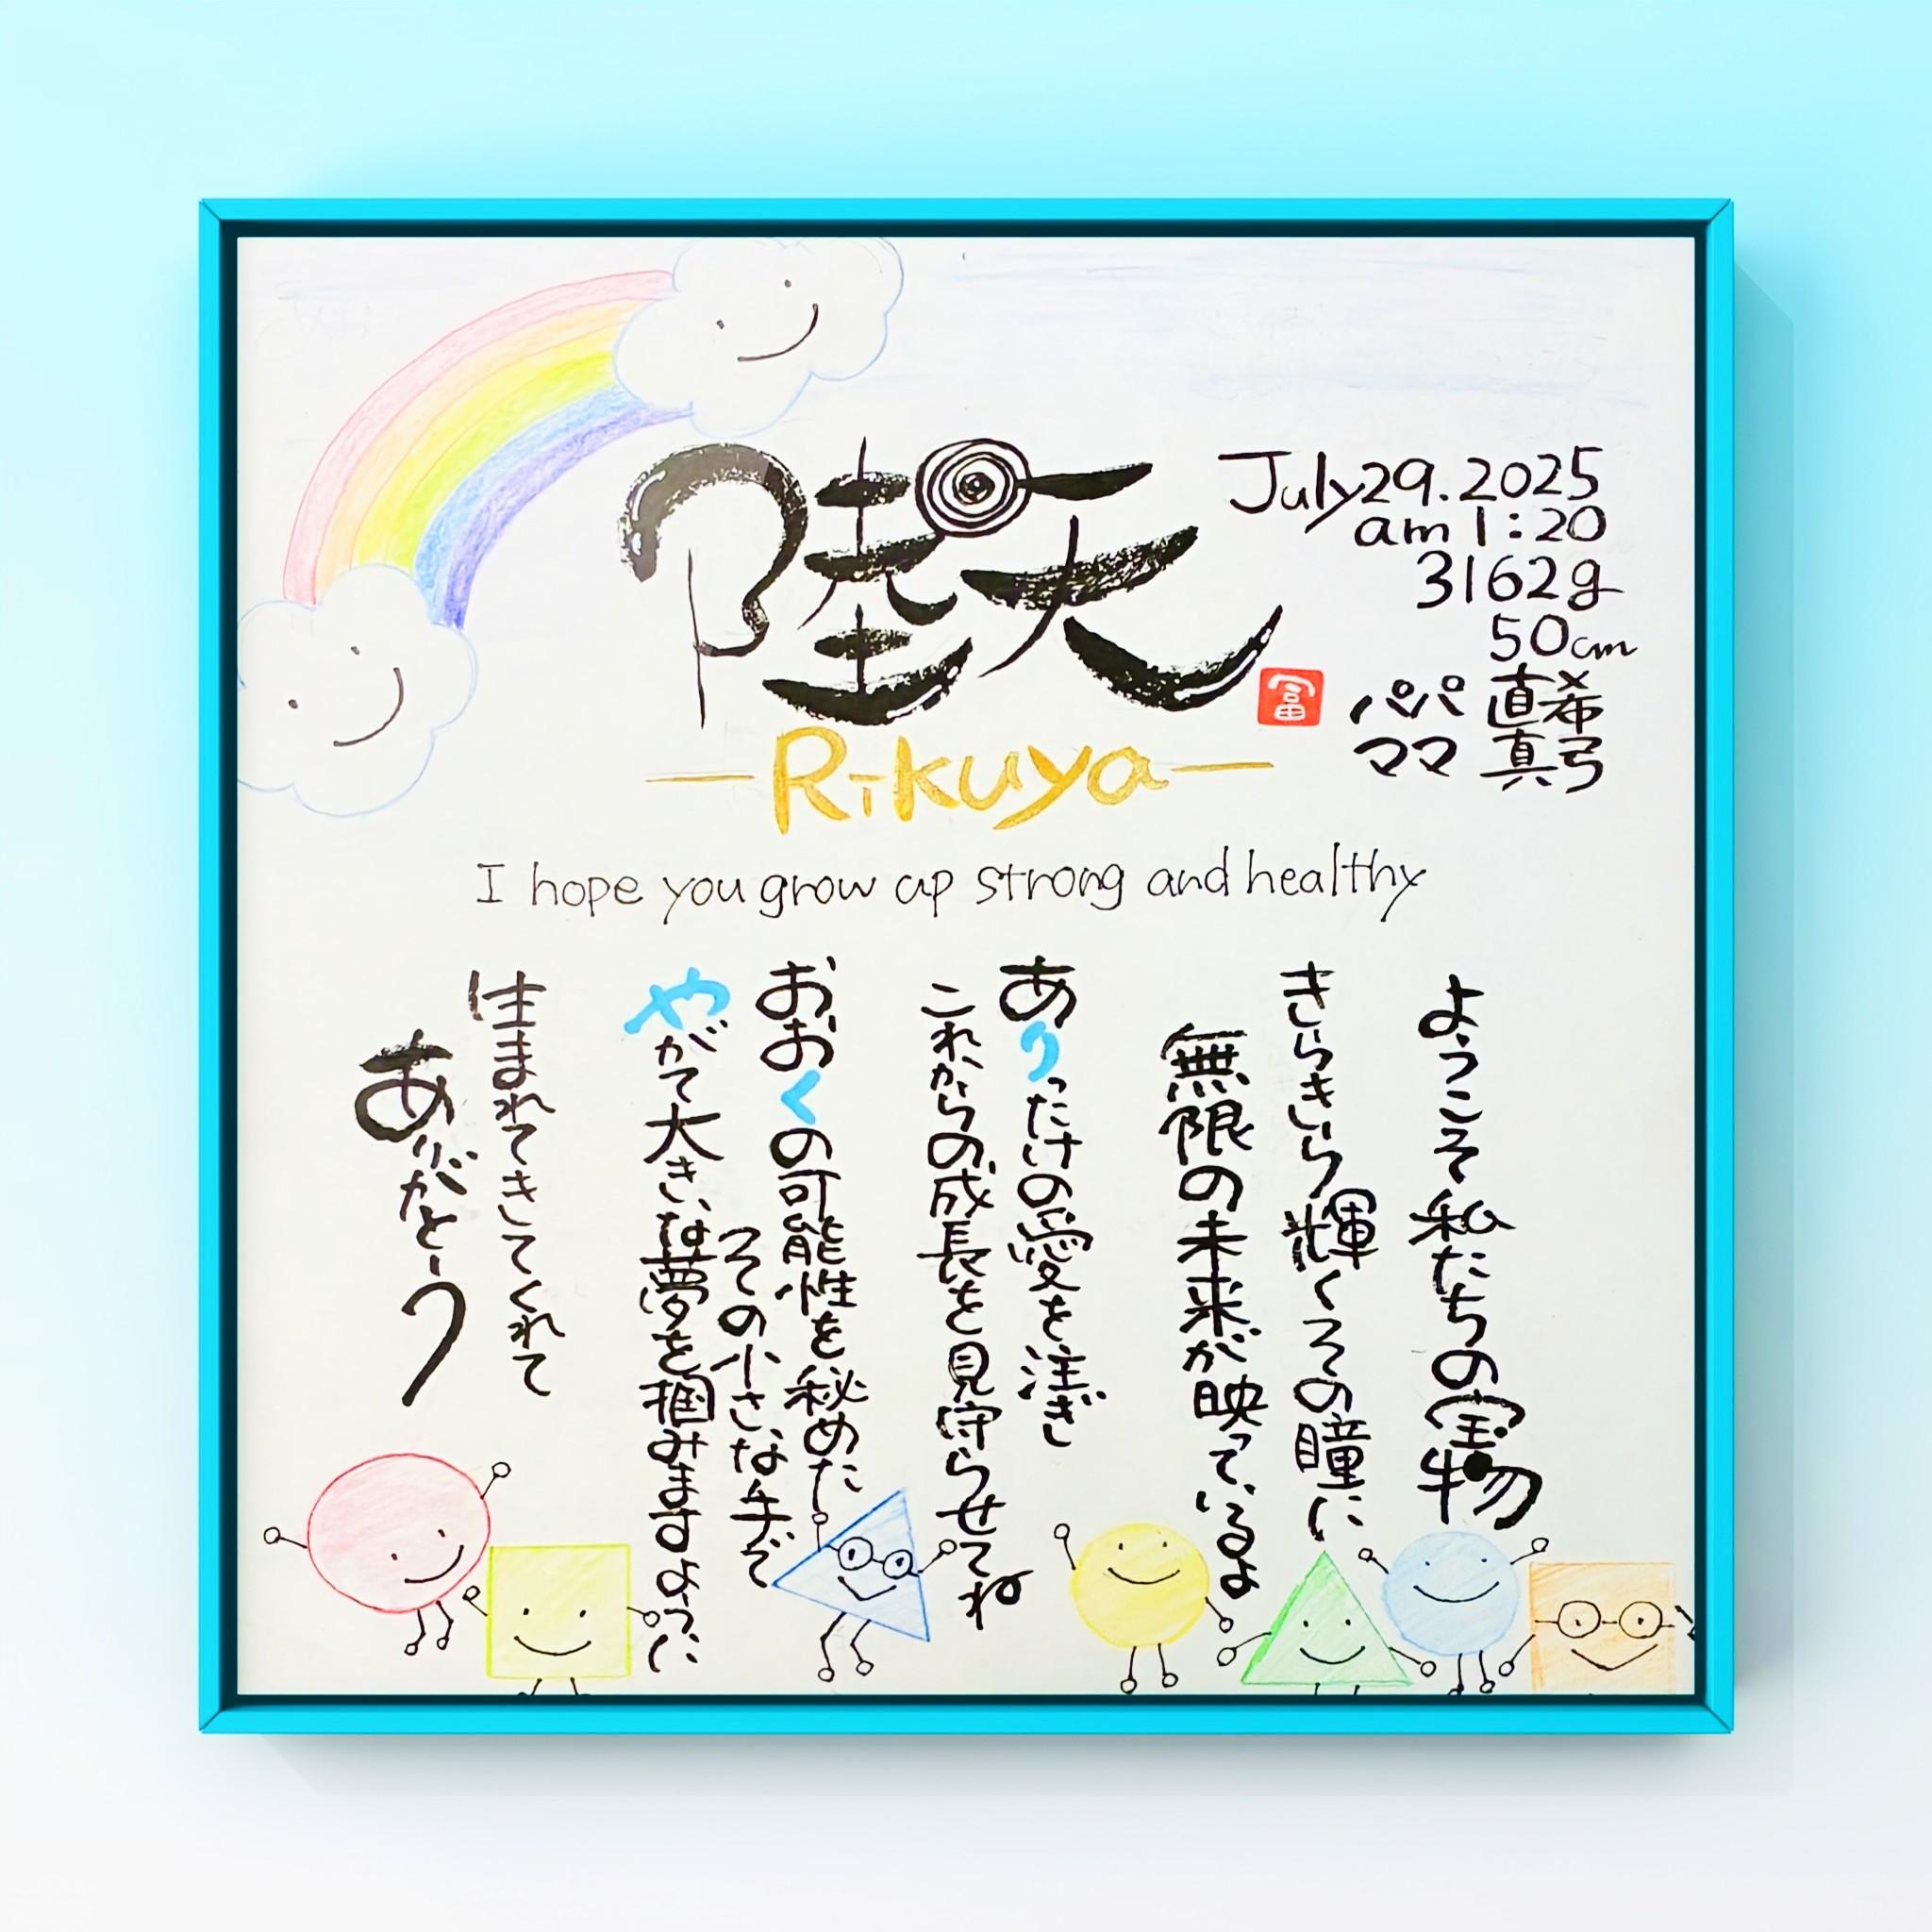 陸天
Rikuya
July 29. 2025
am 1:20
3162g
50cm
パパ 直希
ママ 真弓
冨
I hope you grow up strong and healthy
ようこそ私たちの宝物
きらきら輝くその瞳に
無限の未来が映っているよ
ありったけの愛を注ぎ
これからの成長を見守らせてね
おおくの可能性を秘めた
その小さな手で
やがて大きな夢を掴みますように
生まれてきてくれて
ありがとう